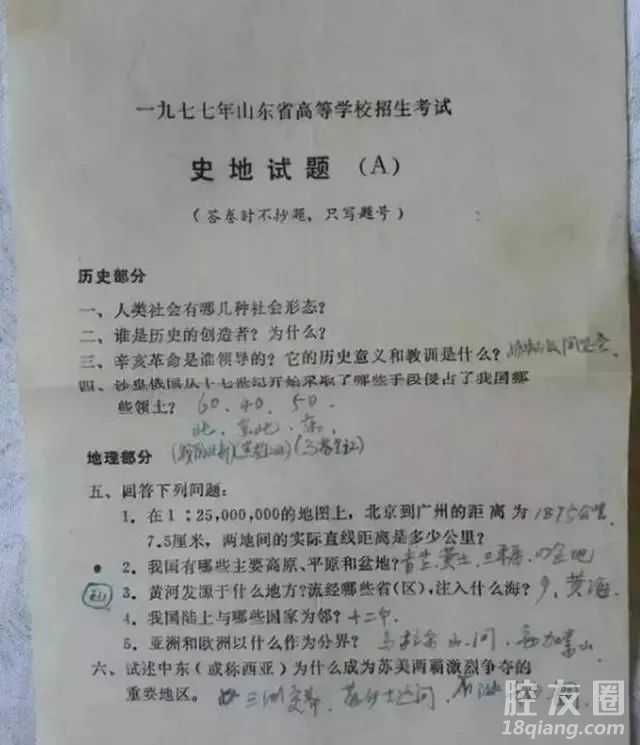 一九七七年山东省高等学校招生考试
史地试题（A）
（答卷时不抄题，只写题号）
历史部分
一、人类社会有哪几种社会形态？
二、谁是历史的创造者？为什么？
三、辛亥革命是谁领导的？它的历史意义和教训是什么？ 同盟会
四、沙皇俄国从十七世纪开始采取了哪些手段侵占了我国那
些领土？ 60、40、50
北、东北、东
地理部分
五、回答下列问题：
1．在1：25,000,000的地图上，北京到广州的距离为 1875公里
7.5厘米，两地间的实际直线距离是多少公里？
2．我国有哪些主要高原、平原和盆地？
3．黄河发源于什么地方？流经哪些省(区)，注入什么海？ 9、黄海
4．我国陆上与哪些国家为邻？ 十二个
5．亚洲和欧洲以什么作为分界？ 乌拉尔山、河、高加索山
六、试述中东（或称西亚）为什么成为苏美两霸激烈争夺的
重要地区。 三洲交界 苏伊士运河 石油
腔友圈
18qiang.com